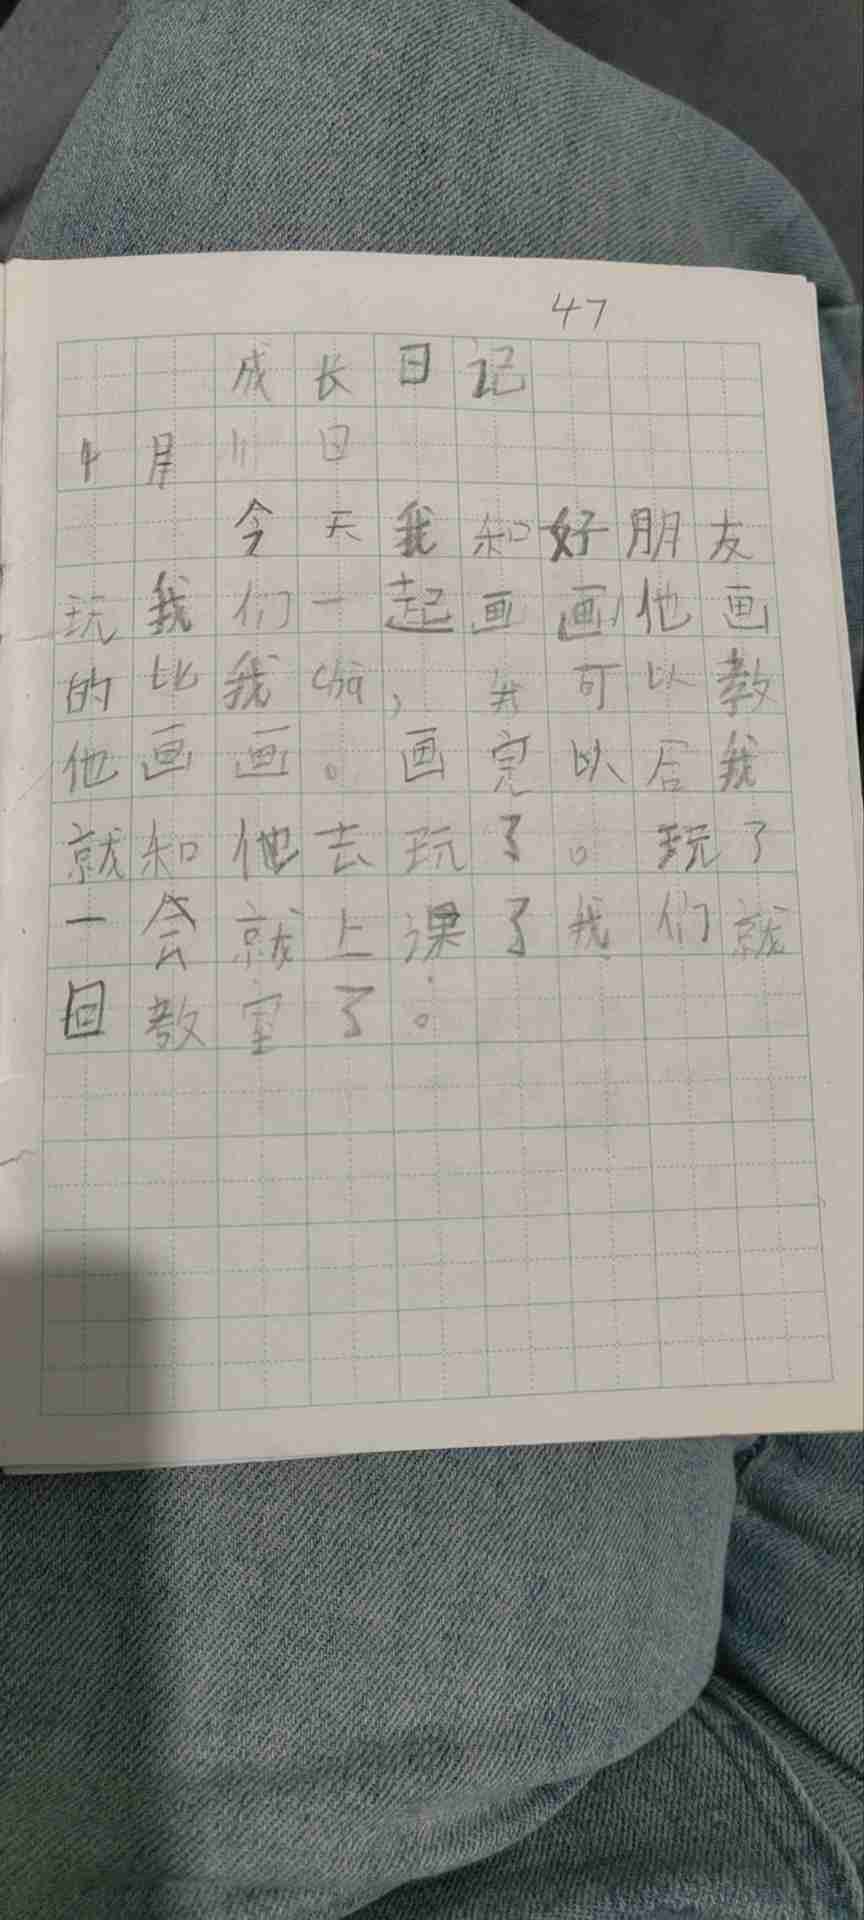 47
成长日记
4月11日
今天我和好朋友
玩我们一起画画,他画
的比我chà,我可以教
他画画。画完以后我
就和他去玩了。玩了
一会就上课了我们就
回教室了。